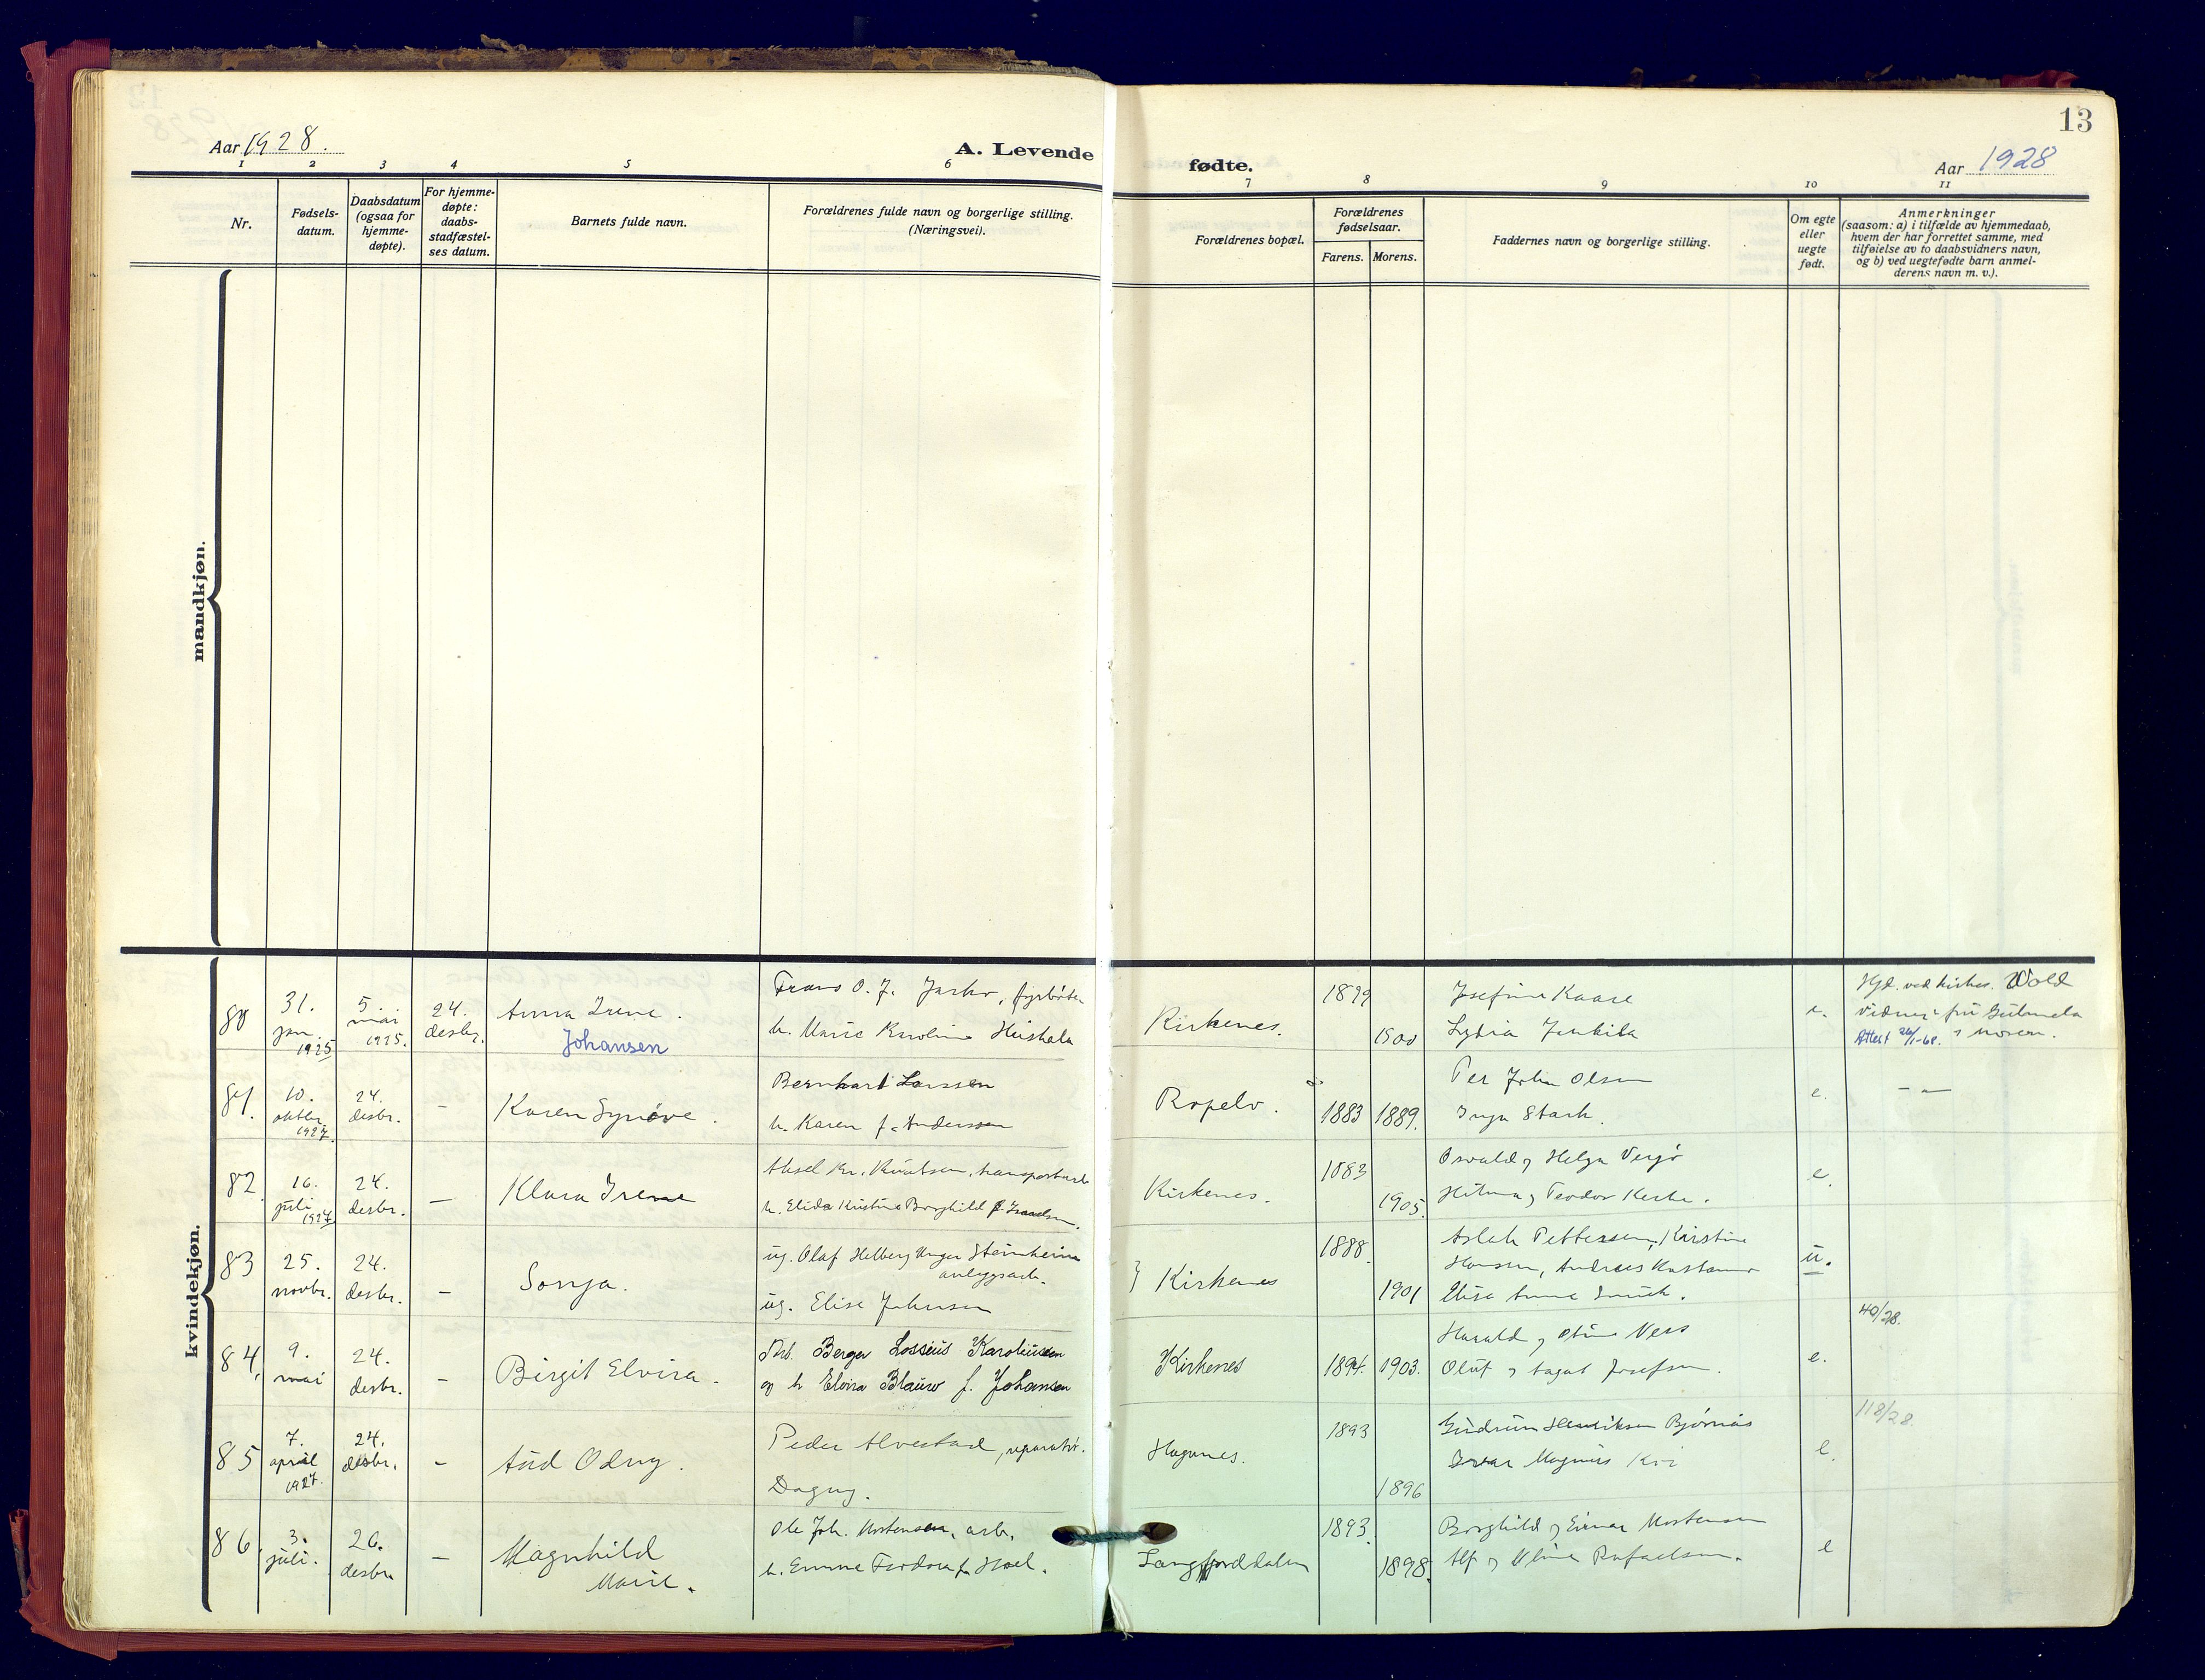 13
Aar 1928.
A. Levende
fødte.
Aar 1928
1 2 3 4 5 6
7 8 9 10 11
Nr.
Fødsels-
datum.
Daabsdatum
(ogsaa for
hjemme-
døpte).
For hjemme-
døpte:
daabs-
stadfæstel-
ses datum.
Barnets fulde navn.
Forældrenes fulde navn og borgerlige stilling.
(Næringsvei).
Forældrenes bopæl.
Forældrenes
fødselsaar.
Farens. Morens.
Faddernes navn og borgerlige stilling.
Om egte
eller
uegte
født.
Anmerkninger
(saasom: a) i tilfælde av hjemmedaab,
hvem der har forrettet samme, med
tilføielse av to daabsvidners navn,
og b) ved uegtefødte barn anmel-
derens navn m. v.).
mandkjøn.
kvindekjøn.
80
31.
jan.
1925
5
mai
1925.
24.
desbr.
Anna Irene.
Johansen
Frans O. J.
h. Marie Karoline
Kirkenes.
1899
1900
Josefine Kaare
Lydia
e.
Hjd. ved Wold
Attest 26/1-68.
81.
10.
oktbr.
1927.
24.
desbr.
-
Karen Synöve.
Bernhart Larssen
h. Karen f. Anderssen
Ropelv.
1883
1889.
Per John Olsen
Inga Stark.
e.
- -
82
16.
juli
1927
24.
desbr.
-
Klara Irene
Aksel Kr. Knutsen, transportarb
h. Elida Kristine Borghild f.
Kirkenes.
1883
1905.
Osvald og Helga
Hilma og Teodor
e.
83
25.
novbr.
24.
desbr.
-
Sonja.
ug. Olaf Helberg Unger Steinheim
anleggsarb.
ug. Elise Johnsen
Kirkenes
1888.
1901
Aslak Pettersen, Kirstine
Hansen, Andreas
Elise Anna
u.
84.
9.
mai
24.
desbr.
-
Birgit Elvira.
Arb. Berger Lossius Karoliussen
og h Elvira Blauw f. Johansen
Kirkenes
1894.
1903.
Harald og
Oluf og Aagot Josefsen.
e.
40/28.
85
7.
april
1927.
24.
desbr.
-
Aud Odny.
Peder Alvestad,
Dagny.
Haganes.
1893
1896
Gudrun Henriksen Bjørnås
Ivar Magnus
e.
118/28.
86.
3.
juli.
26.
desbr.
-
Magnhild
Marie.
Ole Joh. Mortensen, arb.
h. Emma Teodora f.
Langfjorddalen
1893.
1898.
Borghild og Einar Mortensen
Alf og Rafaelsen.
e